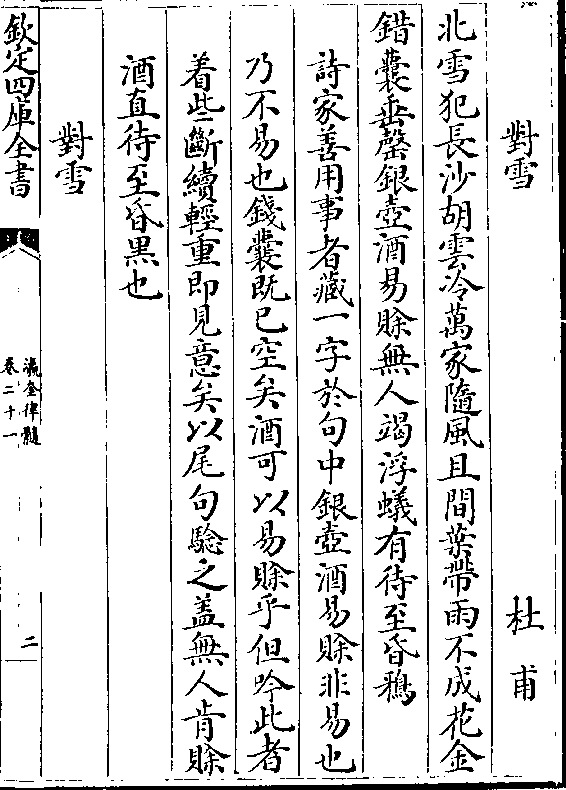 對雪　杜甫
北雪犯長沙胡雲冷萬家隨風且間葉帶雨不成花金
錯囊垂罄銀壺酒易賖無人竭浮蟻有待至昏鴉
詩家善用事者藏一字於句中銀壺酒易賖非易也
乃不易也錢囊既已空矣酒可以易賖乎但吟此者
着些斷續輕重即見意矣以尾句驗之盖無人肯賖
酒直待至昏黒也
對雪
欽定四庫全書
瀛奎律髓
卷二十一
二